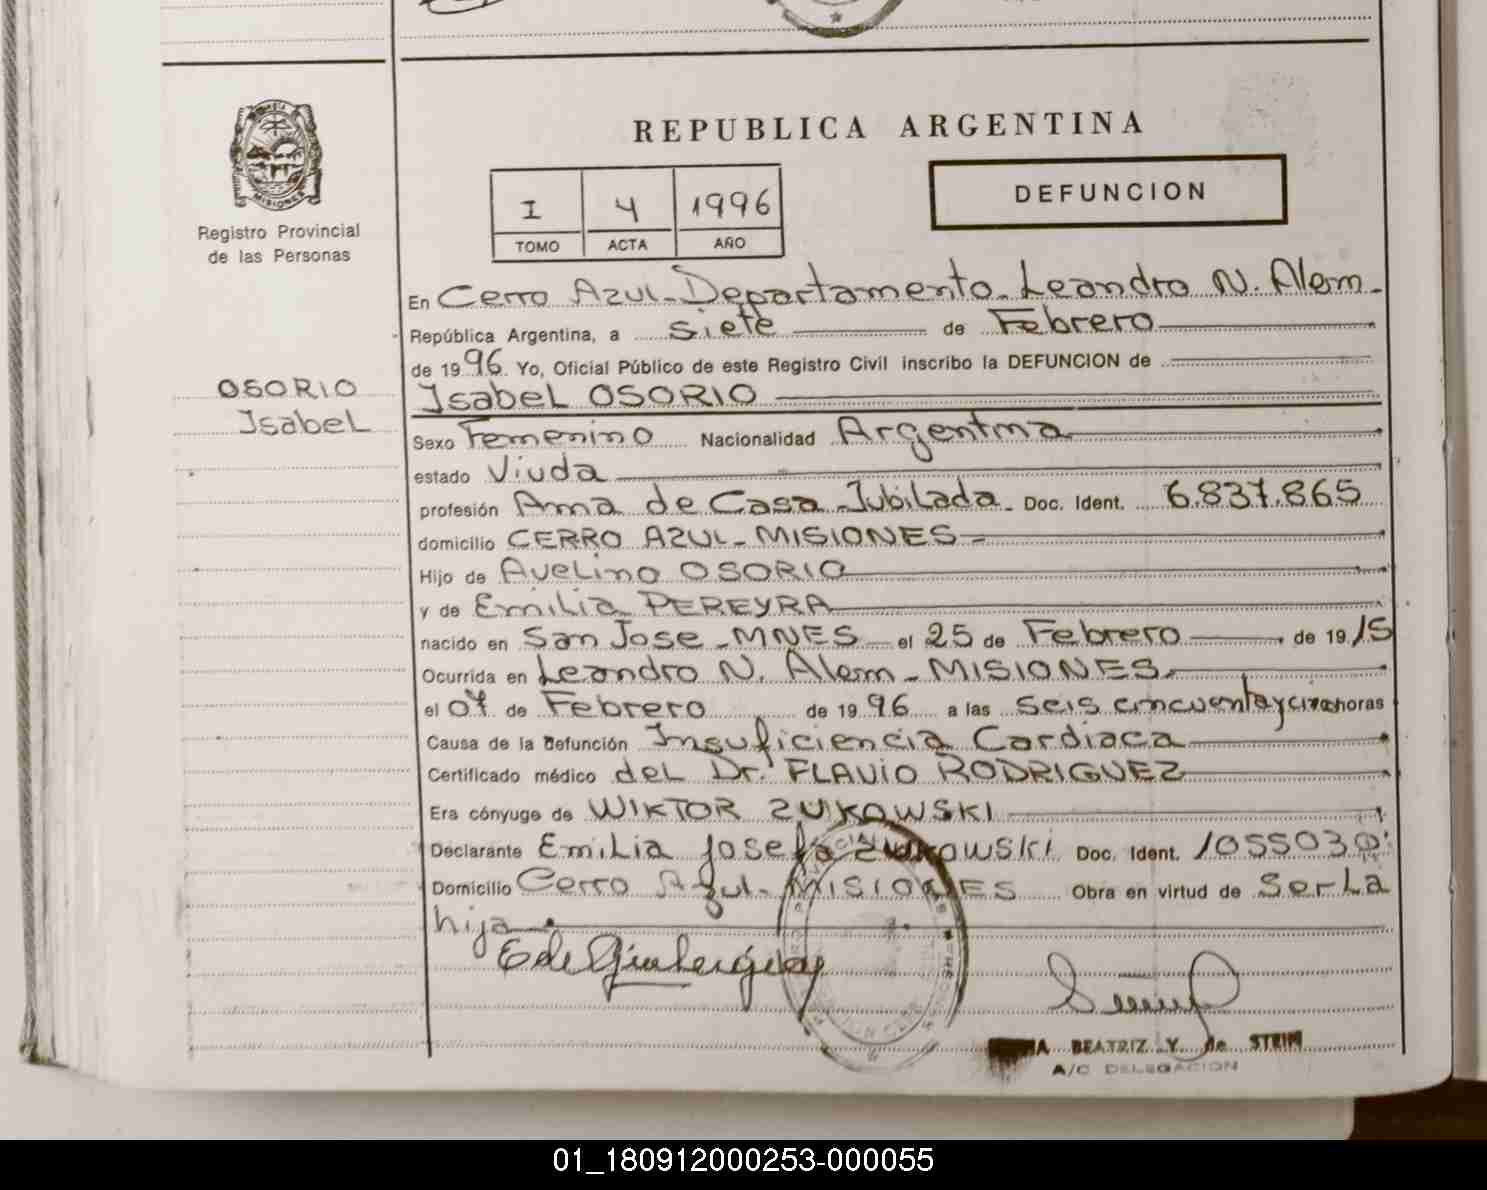 MISIONES
Registro Provincial
de las Personas
OSORIO
Isabel
REPUBLICA ARGENTINA
I 4 1996
TOMO ACTA AÑO
DEFUNCION
En Cerro Azul - Departamento - Leandro N. Alem -
República Argentina, a siete de Febrero
de 1996. Yo, Oficial Público de este Registro Civil inscribo la DEFUNCION de
Isabel OSORIO
Sexo Femenino Nacionalidad Argentina
estado Viuda
profesión Ama de Casa - Jubilada - Doc. Ident. 6.837.865
domicilio CERRO AZUL - MISIONES -
Hijo de Avelino OSORIO
y de Emilia PEREYRA
nacido en San Jose - MNES - el 25 de Febrero de 1915
Ocurrida en Leandro N. Alem - MISIONES -
el 07 de Febrero de 1996 a las seis cincuenta y cinco horas
Causa de la defunción Insuficiencia Cardiaca
Certificado médico del Dr. FLAVIO RODRIGUEZ
Era cónyuge de WIKTOR ZUKOWSKI
Declarante Emilia Josefa Zukowski Doc. Ident. 1055030
Domicilio Cerro Azul - MISIONES Obra en virtud de Ser La
hija
BEATRIZ Y. de STEIN
A/C DELEGACION
01_180912000253-000055